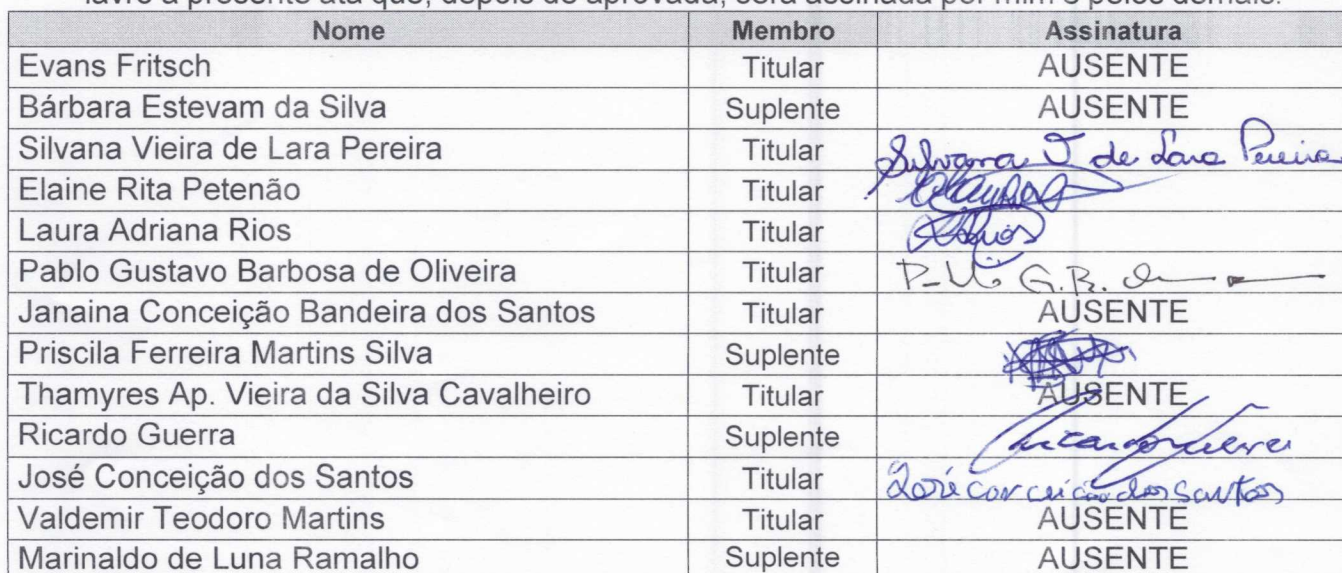 lavro a presente ata que, depois de aprovada, será assinada por mim e pelos demais.
Nome Membro Assinatura
Evans Fritsch Titular AUSENTE
Bárbara Estevam da Silva Suplente AUSENTE
Silvana Vieira de Lara Pereira Titular Silvana V de Lara Pereira
Elaine Rita Petenão Titular
Laura Adriana Rios Titular
Pablo Gustavo Barbosa de Oliveira Titular G.B.
Janaina Conceição Bandeira dos Santos Titular AUSENTE
Priscila Ferreira Martins Silva Suplente
Thamyres Ap. Vieira da Silva Cavalheiro Titular AUSENTE
Ricardo Guerra Suplente Ricardo Guerra
José Conceição dos Santos Titular José Conceição dos Santos
Valdemir Teodoro Martins Titular AUSENTE
Marinaldo de Luna Ramalho Suplente AUSENTE